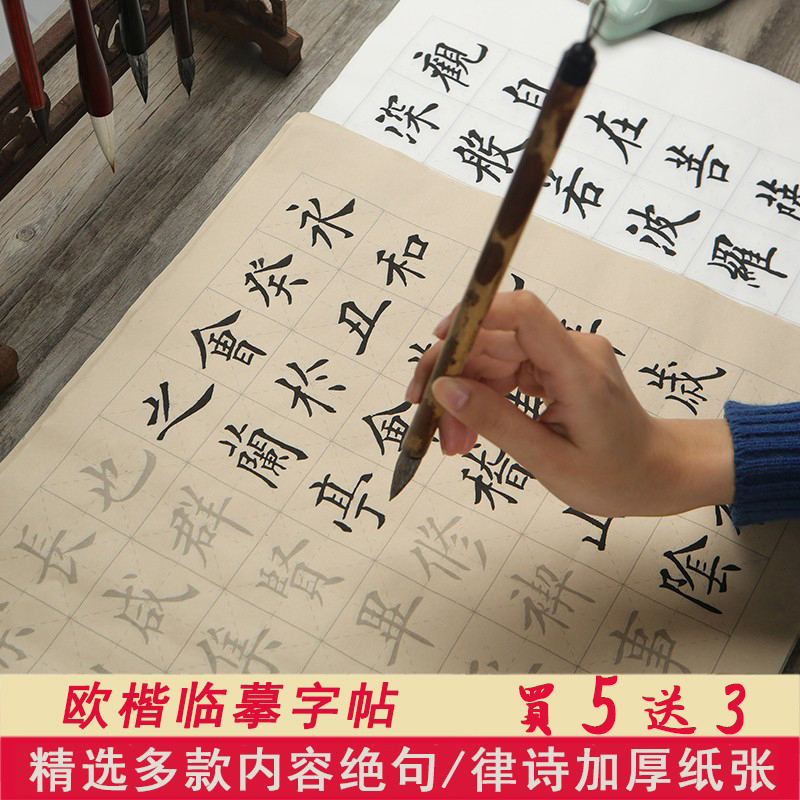 觀自在菩薩
深般若波羅
永和年歲
癸丑
會於會稽山陰
之蘭亭修禊事
也群賢畢
長咸集
欧楷临摹字帖 買5送3
精选多款内容绝句/律诗加厚纸张